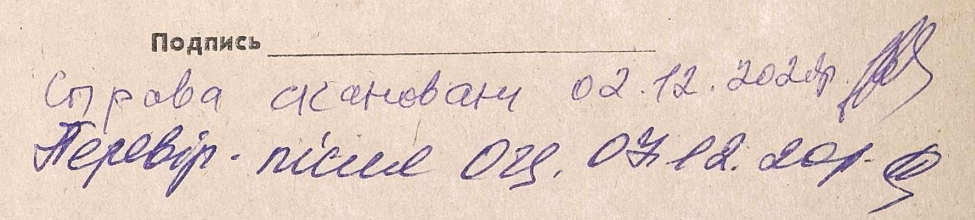 Подпись
Справа сканован 02.12.202 р.
Перевір. після ОЦ. 07.12. р.